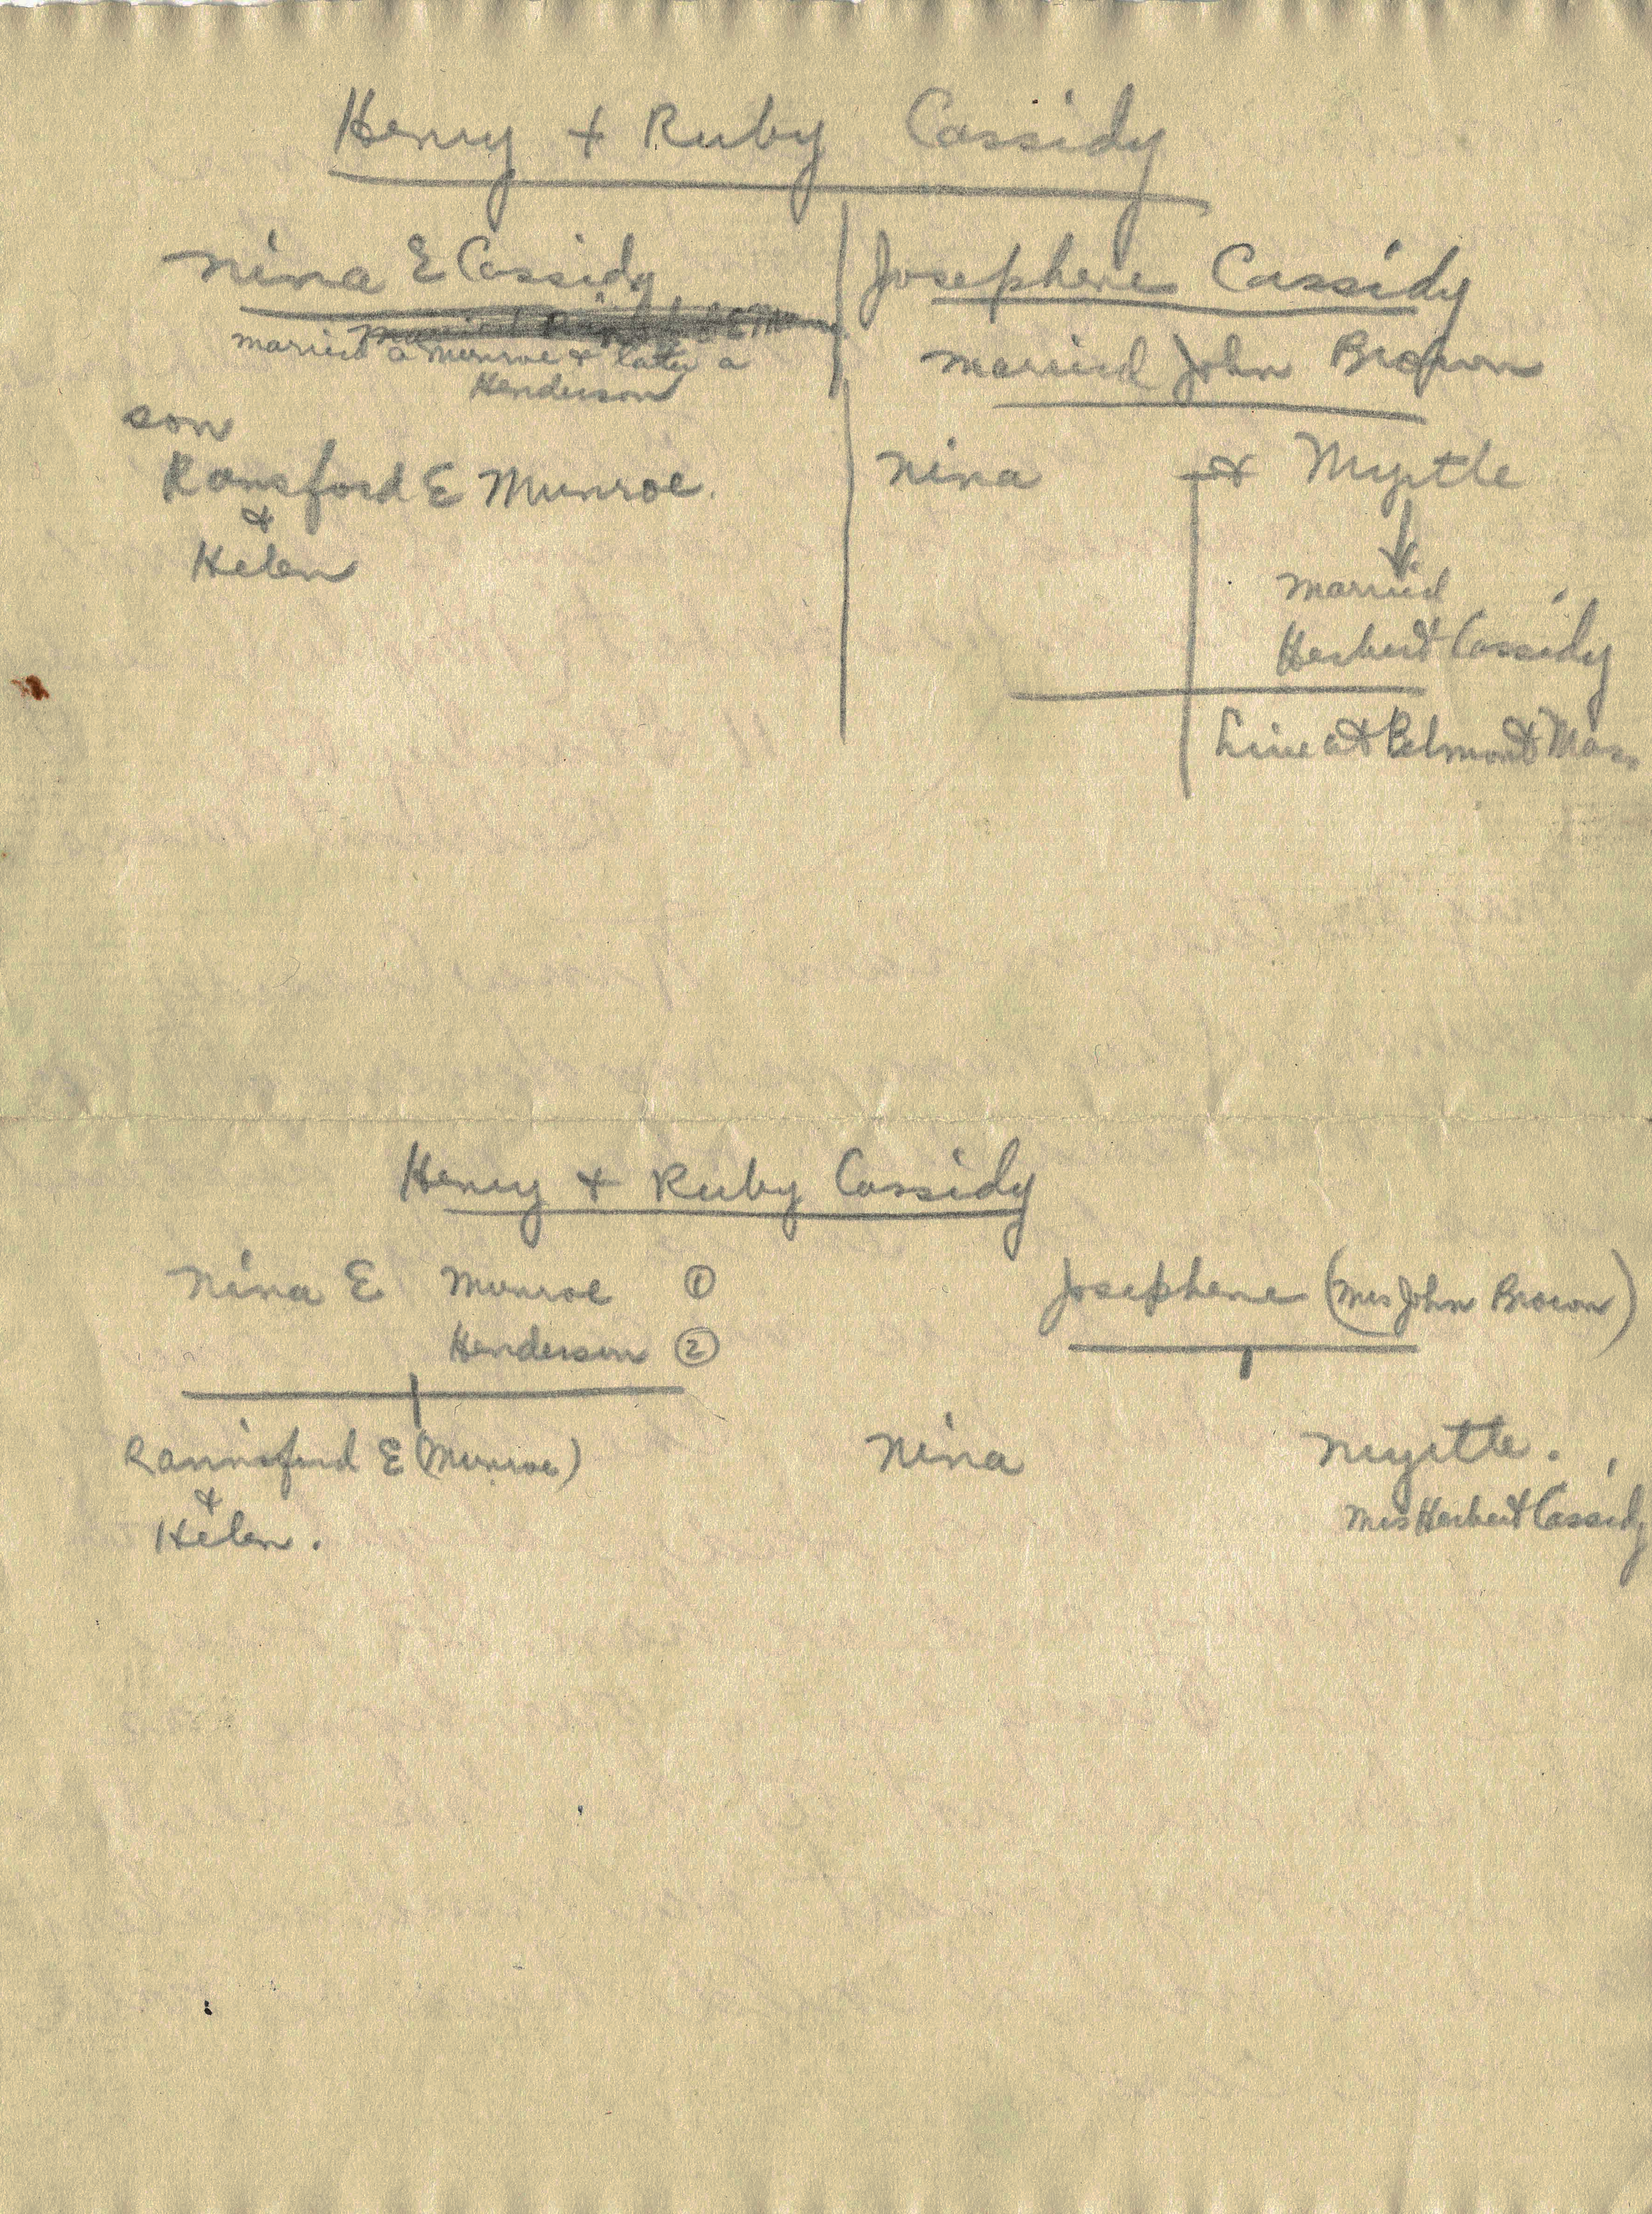 Henry + Ruby Cassidy
Nina E Cassidy
married a Munroe + later a
Henderson
son
Ransford E Munroe.
&
Helen
Josephene Cassidy
married John Brown
Nina & Myrtle
married
Herbert Cassidy
Live at Belmont Mass
Henry + Ruby Cassidy
Nina E Munroe ①
Henderson ②
Rannsford E (Munroe)
&
Helen.
Josephene (Mrs John Brown)
Nina Myrtle.
Mrs Herbert Cassidy